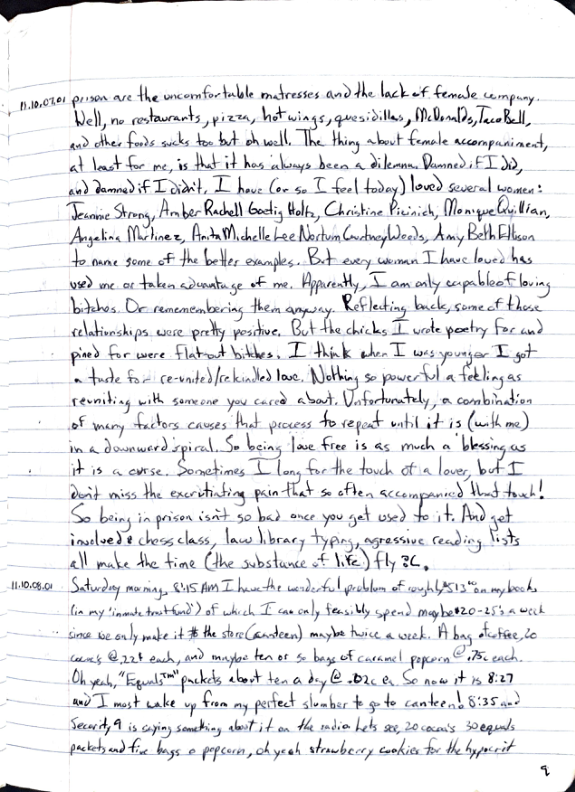 11.10.07.01 prison are the uncomfortable matresses and the lack of female company.
Well, no restaurants, pizza, hot wings, quesidillas, McDonalds, Taco Bell,
and other foods sucks too but oh well. The thing about female accompaniment,
at least for me, is that it has always been a dilemna. Damned if I did,
and damned if I didn't, I have (or so I feel today) loved several women:
Jeannie Strong, Amber Rachell Holtz, Christine Picinich, Monique Quillian,
Angelina Martinez, Anita Michelle Lee Norton Courtney Woods, Amy Beth Ellison
to name some of the better examples. But every woman I have loved has
used me or taken advantage of me. Apparently, I am only capable of loving
bitches. Or remembering them anyway. Reflecting back, some of those
relationships were pretty positive. But the chicks I wrote poetry for and
pined for were flat out bitches. I think when I was younger I got
a taste for re-united/rekindled love. Nothing so powerful a feeling as
reuniting with someone you cared about. Unfortunately, a combination
of many factors causes that process to repeat until it is (with me)
in a downward spiral. So being love free is as much a blessing as
it is a curse. Sometimes I long for the touch of a lover, but I
don't miss the excrutiating pain that so often accompanied that touch!
So being in prison isn't so bad once you get used to it. And get
involved: chess class, law library typing, agressive reading lists
all make the time (the substance of life) fly
11.10.08.01 Saturday morning, 8:15 AM I have the wonderful problem of roughly $513 on my books
(in my "inmate trust fund") of which I can only feasibly spend maybe $20-25 a week
since we only make it to the store (canteen) maybe twice a week. A bag of coffee, 20
cocoa's @ .22¢ each, and maybe ten or so bags of caramel popcorn @ .75¢ each.
Oh yeah, "Equals™" packets about ten a day @ .02¢ ea. So now it is 8:27
and I most wake up from my perfect slumber to go to canteen! 8:35 and
Security 9 is saying something about it on the radio lets see, 20 cocoa's 30 equals
packets and five bags o popcorn, oh yeah strawberry cookies for the hypocrit
9